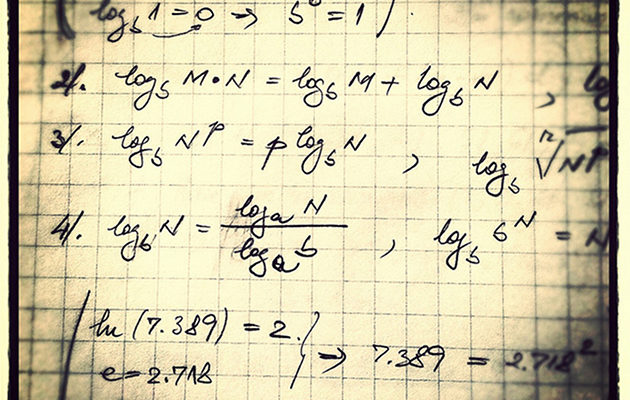 (log_b 1 = 0 → b^0 = 1).
2/. log_b M•N = log_b M + log_b N , log
3/. log_b N^p = p log_b N , log_b ⁿ√N^p
4/. log_b N = log_a N / log_a b , log_b b^N = N
ln (7.389) = 2.
e = 2.718 } → 7.389 = 2.718²